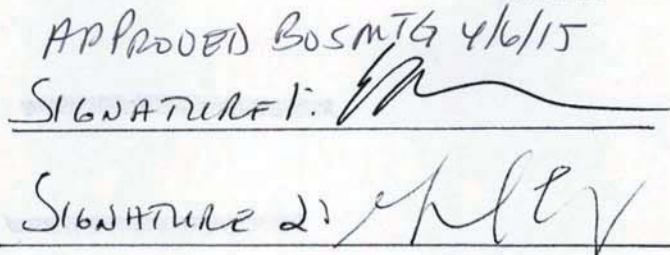 APPROVED BOSMTG 4/6/15
SIGNATURE 1:
SIGNATURE 2: